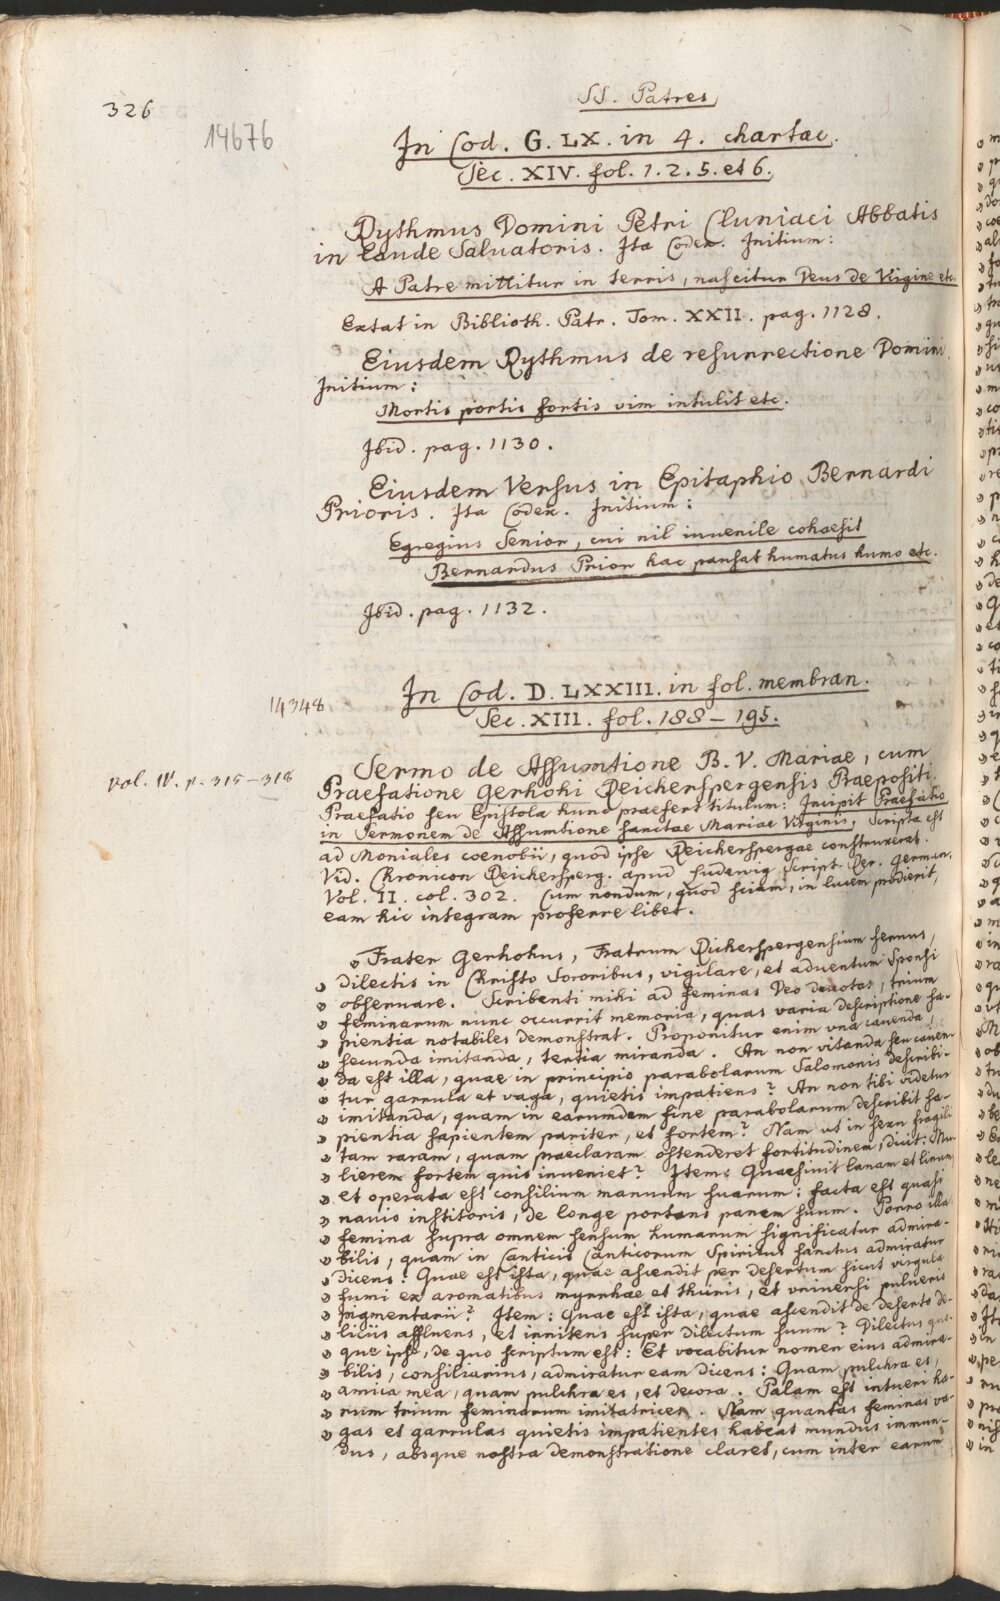 326
SS. Patres
14676
In Cod. G. LX. in 4. chartac.
Sec. XIV. fol. 1. 2. 5. et 6.
Rythmus Domini Petri Cluniaci Abbatis
in laude Saluatoris. Ita Codex. Initium:
A Patre mittitur in terris, nascitur Deus de Virgine etc.
Extat in Biblioth. Patr. Tom. XXII. pag. 1128.
Eiusdem Rythmus de resurrectione Domini.
Initium:
Mortis portis fortis vim intulit etc.
Ibid. pag. 1130.
Eiusdem Versus in Epitaphio Bernardi
Prioris. Ita Codex. Initium:
Egregius Senior, cui nil iuuenile cohaesit
Bernardus Prior hac pausat humatus humo etc.
Ibid. pag. 1132.
14348
In Cod. D. LXXIII. in fol. membran.
Sec. XIII. fol. 188–195.
Vol. IV. p. 315–318
Sermo de Assumtione B. V. Mariae, cum
Praefatione Gerhohi Reicherspergensis Praepositi.
Praefatio seu Epistola hunc praefert titulum: Incipit Praefatio
in Sermonem de Assumtione sanctae Mariae Virginis. Scripta est
ad Moniales coenobii, quod ipse Reicherspergae construxerat.
Vid. Chronicon Reichersperg. apud Ludewig Script. Rer. German.
Vol. II. col. 302. Cum nondum, quod sciam, in lucem prodierit,
eam hic integram proferre libet.
Frater Gerhohus, Fratrum Richerspergensium seruus,
dilectis in Christo Sororibus, vigilare, et aduentum Sponsi
obseruare. Scribenti mihi ad feminas Deo deuotas, trium
feminarum nunc occurrit memoria, quas varia descriptione sa-
pientia notabiles demonstrat. Proponitur enim vna cauenda,
secunda imitanda, tertia miranda. An non vitanda seu cauen-
da est illa, quae in principio parabolarum Salomonis describi-
tur garrula et vaga, quietis impatiens? An non tibi videtur
imitanda, quam in earumdem fine parabolarum describit sa-
pientia sapientem pariter, et fortem? Nam ut in sexu fragili
tam raram, quam praeclaram ostenderet fortitudinem, dicit: Mu-
lierem fortem quis inueniet? Item: Quaesiuit lanam et linum,
et operata est consilium manuum suarum: facta est quasi
nauis institoris, de longe portans panem suum. Porro illa
femina supra omnem sensum humanum significatur admira-
bilis, quam in Canticis Canticorum Spiritus sanctus admiratur
dicens: Quae est ista, quae ascendit per desertum sicut virgula
fumi ex aromatibus myrrhae et thuris, et vniuersi pulueris
pigmentarii? Item: Quae est ista, quae ascendit de deserto de-
liciis affluens, et innitens super dilectum suum? Dilectus quo-
que ipse, de quo scriptum est: Et vocabitur nomen eius admira-
bilis, consiliarius, admiratur eam dicens: Quam pulchra es,
amica mea, quam pulchra es, et decora. Palam est intueri ha-
rum trium feminarum imitatrices. Nam quantas feminas va-
gas et garrulas quietis impatientes habeat mundus immun-
dus, absque nostra demonstratione claret, cum inter earum